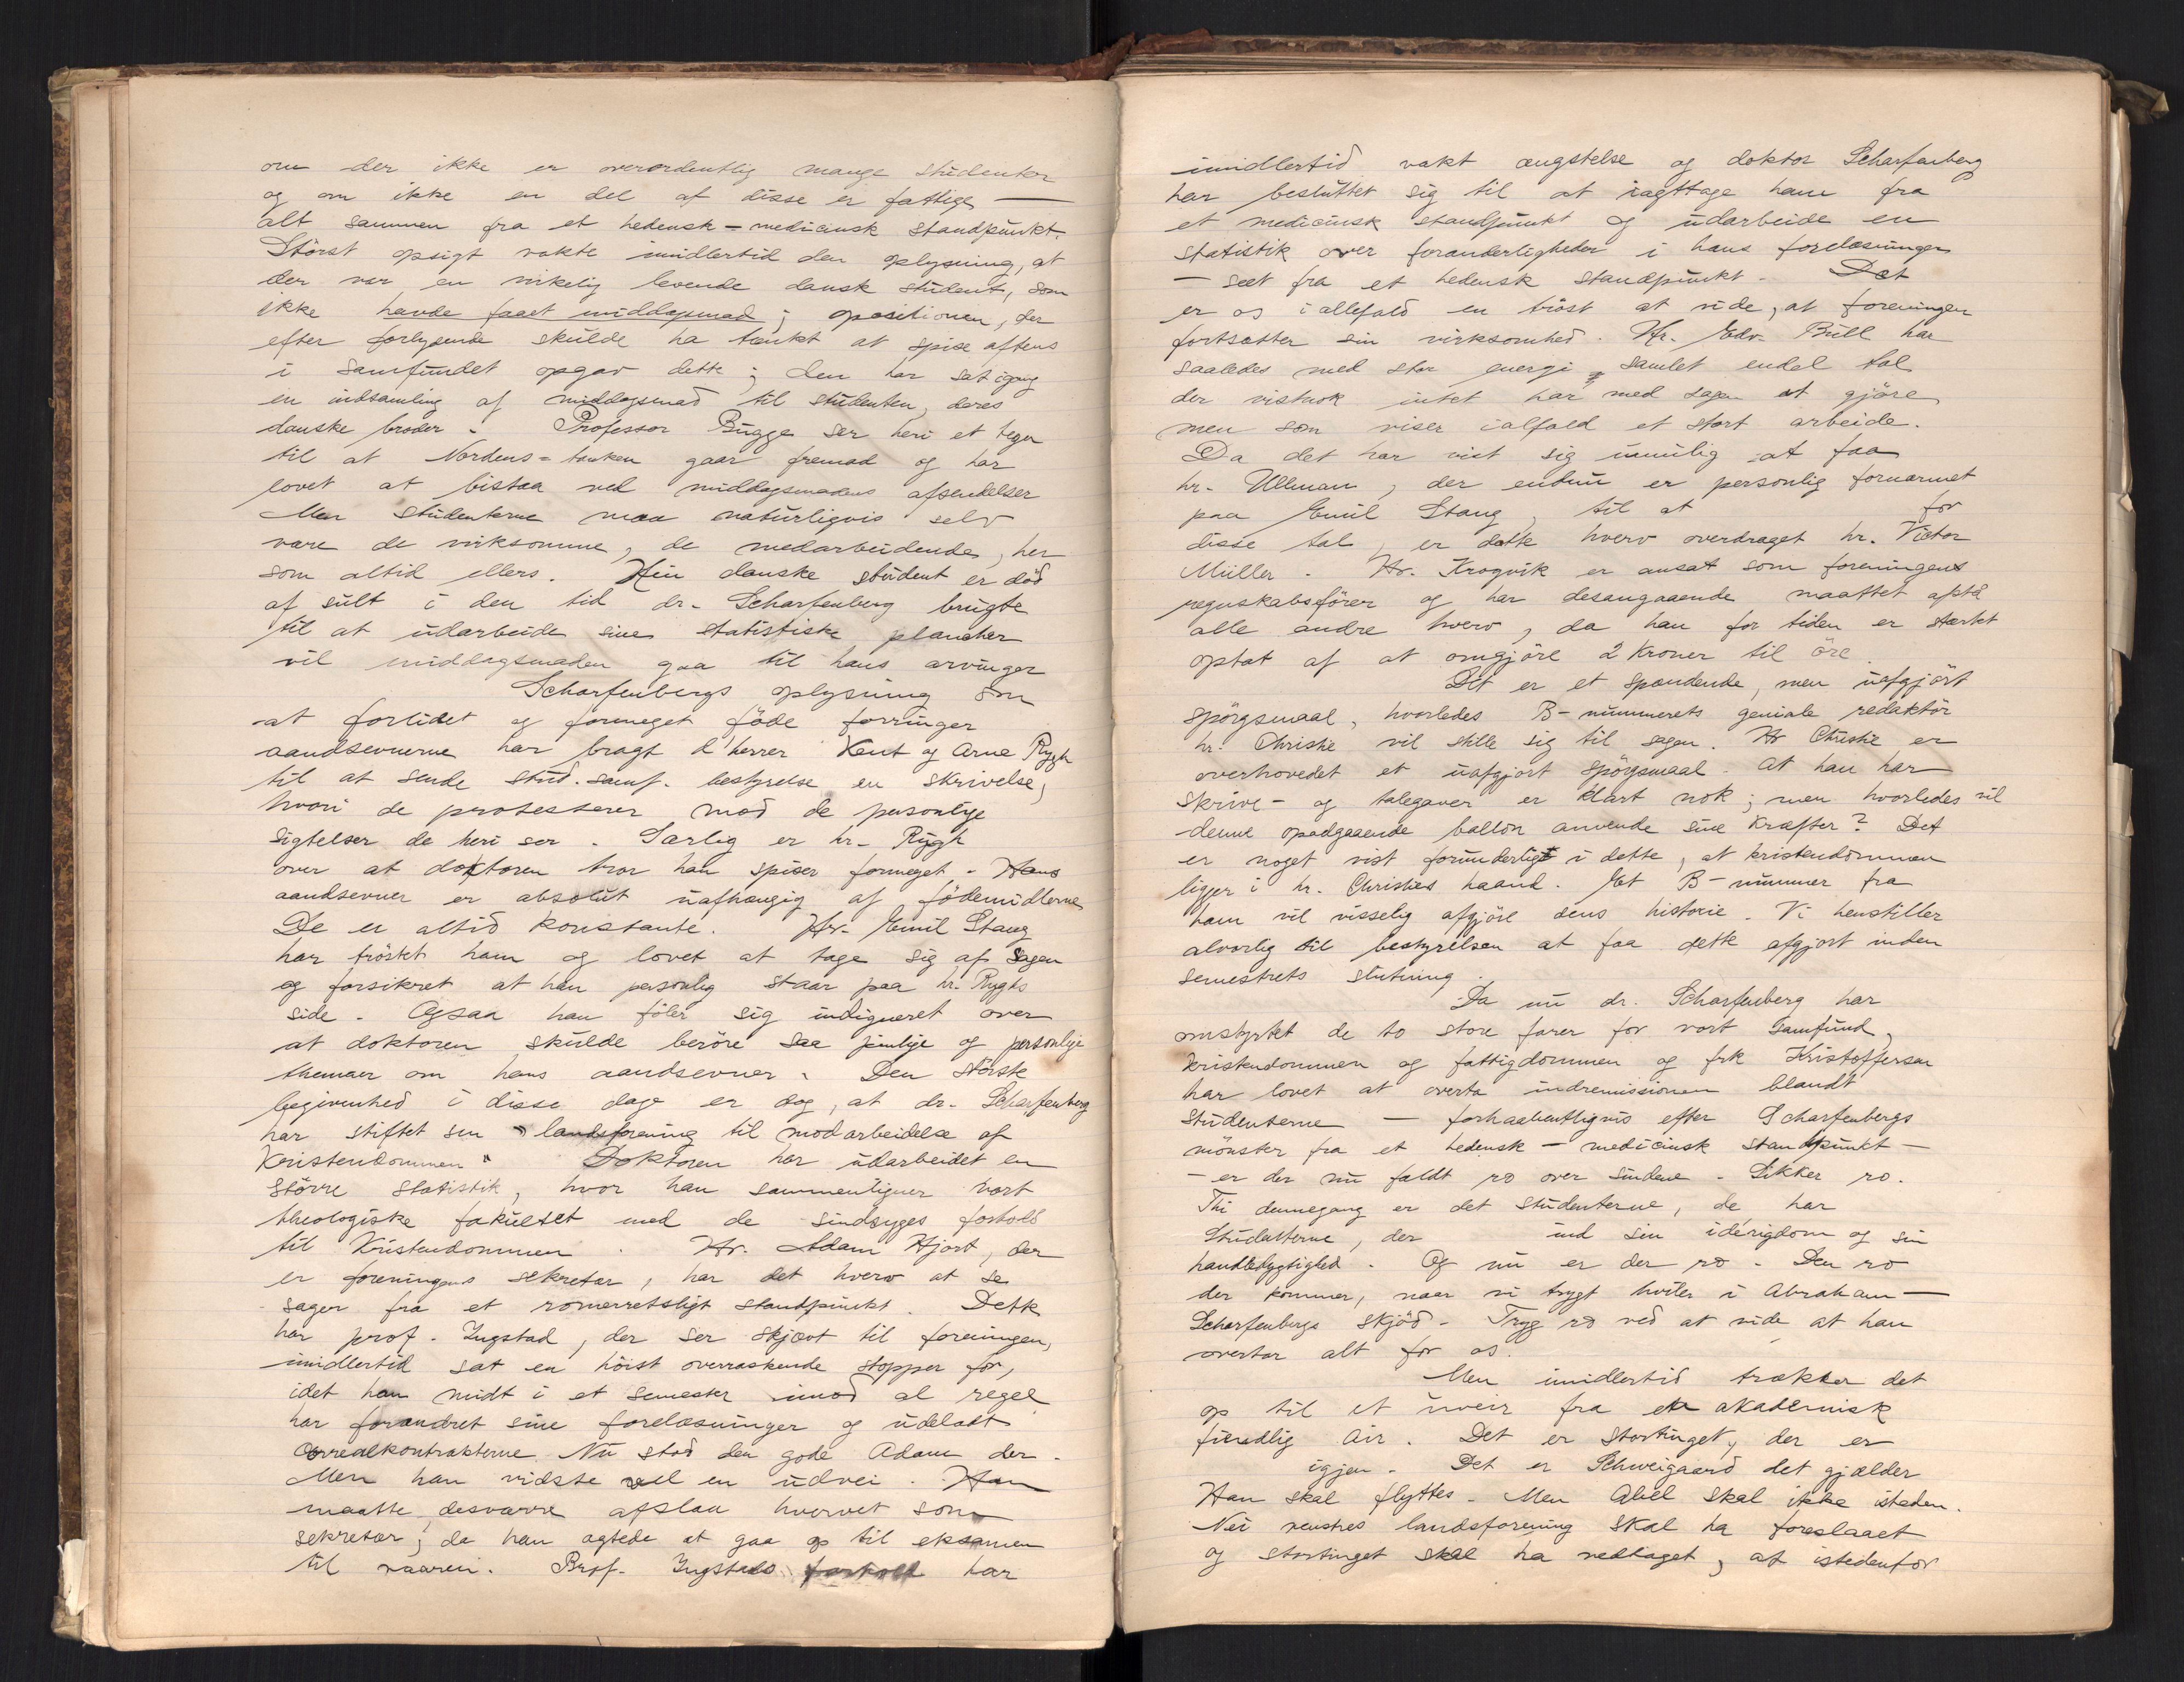 om der ikke er overordentlig mange studenter
og om ikke en del af disse er fattige —
alt sammen fra et hedensk-medicinsk standpunkt.
Størst opsigt vakte imidlertid den oplysning, at
der var en virkelig levende dansk student, som
ikke havde faaet middagsmad; opositionen, der
efter forlydende skulde ha tænkt at spise aftens
i Samfundet opgav dette; den har sat igang
en indsamling af middagsmad til studenten, deres
danske broder. Professor Bugge ser heri et tegn
til at Nordens-tanken gaar fremad og har
lovet at bistaa ved middagsmadens afsendelser
Men studenterne maa naturligvis selv
være de virksomme, de medarbeidende, her
som altid ellers. Hin danske student er død
af sult i den tid dr. Scharfenberg brugte
til at udarbeide sine statistiske plancher
vil middagsmaden gaa til hans arvinger
Scharfenbergs oplysning om
at forlidet og formeget føde forringer
aandsevnerne har bragt d'herrer Kent og Arne Rygh
til at sende stud. samf. bestyrelse en skrivelse,
hvori de protesterer mod de personlige
sigtelser de heri ser. Særlig er hr. Rygh
over at doktoren tror han spiser formeget. Hans
aandsevner er absolut uafhængig af fødemidlerne
De er altid konstante. Hr. Emil Stang
har trøstet ham og lovet at tage sig af sagen
og forsikret at han personlig staar paa hr. Ryghs
side. Ogsaa han føler sig indigneret over
at doktoren skulde berøre saa pinlige og personlige
themaer om hans aandsevner. Den største
begivenhed i disse dage er dog, at dr. Scharfenberg
har stiftet sin "landsforening til modarbeidelse af
Kristendommen" Doktoren har udarbeidet en
større statistik, hvor han sammenligner vort
theologiske fakultet med de sindsyges forhold
til Kristendommen. Hr. Adam Hjort, der
er foreningens sekretær, har det hverv at se
sagen fra et romerretsligt standpunkt. Dette
har prof. Ingstad, der ser skjævt til foreningen,
imidlertid sat en høist overraskende stopper for,
idet han midt i et semester imod al regel
har forandret sine forelæsninger og udeladt
Nu stod den gode Adam der.
Men han vidste vel en udvei. Han
maatte desværre afslaa hvervet som
sekretær; da han agtede at gaa op til eksamen
til vaaren. Prof. Ingstads forhold har
imidlertid vakt ængstelse og doktor Scharfenberg
har besluttet sig til at iagttage ham fra
et medicinsk standpunkt og udarbeide en
statistik over foranderligheder i hans forelæsninger
— seet fra et hedensk standpunkt. Det
er os i allefald en trøst at vide, at foreningen
fortsætter sin virksomhed. Hr. Edv. Bull har
saaledes med stor energi samlet endel tal
der vistnok intet har med sagen at gjøre
men som viser ialfald et stort arbeide.
Da det har vist sig umulig at faa
hr. Ullman, der endnu er personlig fornærmet
paa Emil Stang, til at for
disse tal, er dette hverv overdraget hr. Victor
Müller. Hr. Krogvik er ansat som foreningens
regnskabsfører og har desangaaende maattet afstå
alle andre hverv, da han for tiden er stærkt
optat af at omgjøre 2 Kroner til øre.
Det er et spændende, men uafgjort
spørgsmaal, hvorledes B-nummerets geniale redaktør
hr. Christie vil stille sig til sagen. Hr Christie er
overhovedet et uafgjort spørgsmaal. At han har
skrive- og talegaver er klart nok; men hvorledes vil
denne opadgaaende ballon anvende sine kræfter? Det
er noget vist forunderligt i dette, at kristendommen
ligger i hr. Christies haand. Et B-nummer fra
ham vil visselig afgjøre dens historie. Vi henstiller
alvorlig til bestyrelsen at faa dette afgjort inden
semestrets slutning.
Da nu dr. Scharfenberg har
omstyrtet de to store farer for vort samfund,
kristendommen og fattigdommen og frk Kristoffersen
har lovet at overta indremissionen blandt
studenterne — forhaabentligvis efter Scharfenbergs
mønster fra et hedensk-medicinsk standpunkt —
— er der nu faldt ro over sindene. Sikker ro.
Thi dennegang er det studenterne, de har
Studenterne, der ind sin iderigdom og sin
handledygtighed. Og nu er der ro. Den ro
der kommer, naar vi trygt hviler i Abraham —
Scharfenbergs skjød. Tryg ro ved at vide at han
overtar alt for os.
Men imidlertid trækker det
op til et uveir fra en akademisk
fiendlig air. Det er stortinget, der er
igjen. Det er Schweigaard det gjælder
Han skal flyttes. Men Abel skal ikke isteden.
Nei venstres landsforening skal ha foreslaaet
og stortinget skal ha vedtaget, at istedenfor